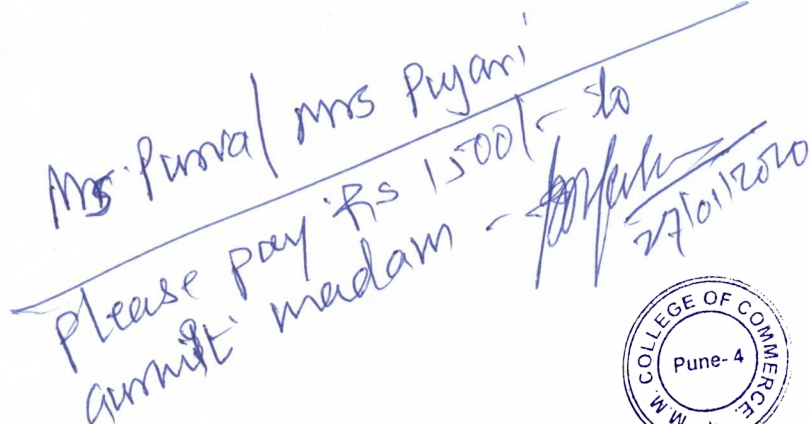 Mrs. Purva / Mrs Pujari
Please pay Rs 1500/- to
madam -
27/01/2020
M.M. COLLEGE OF COMMERCE
Pune-4